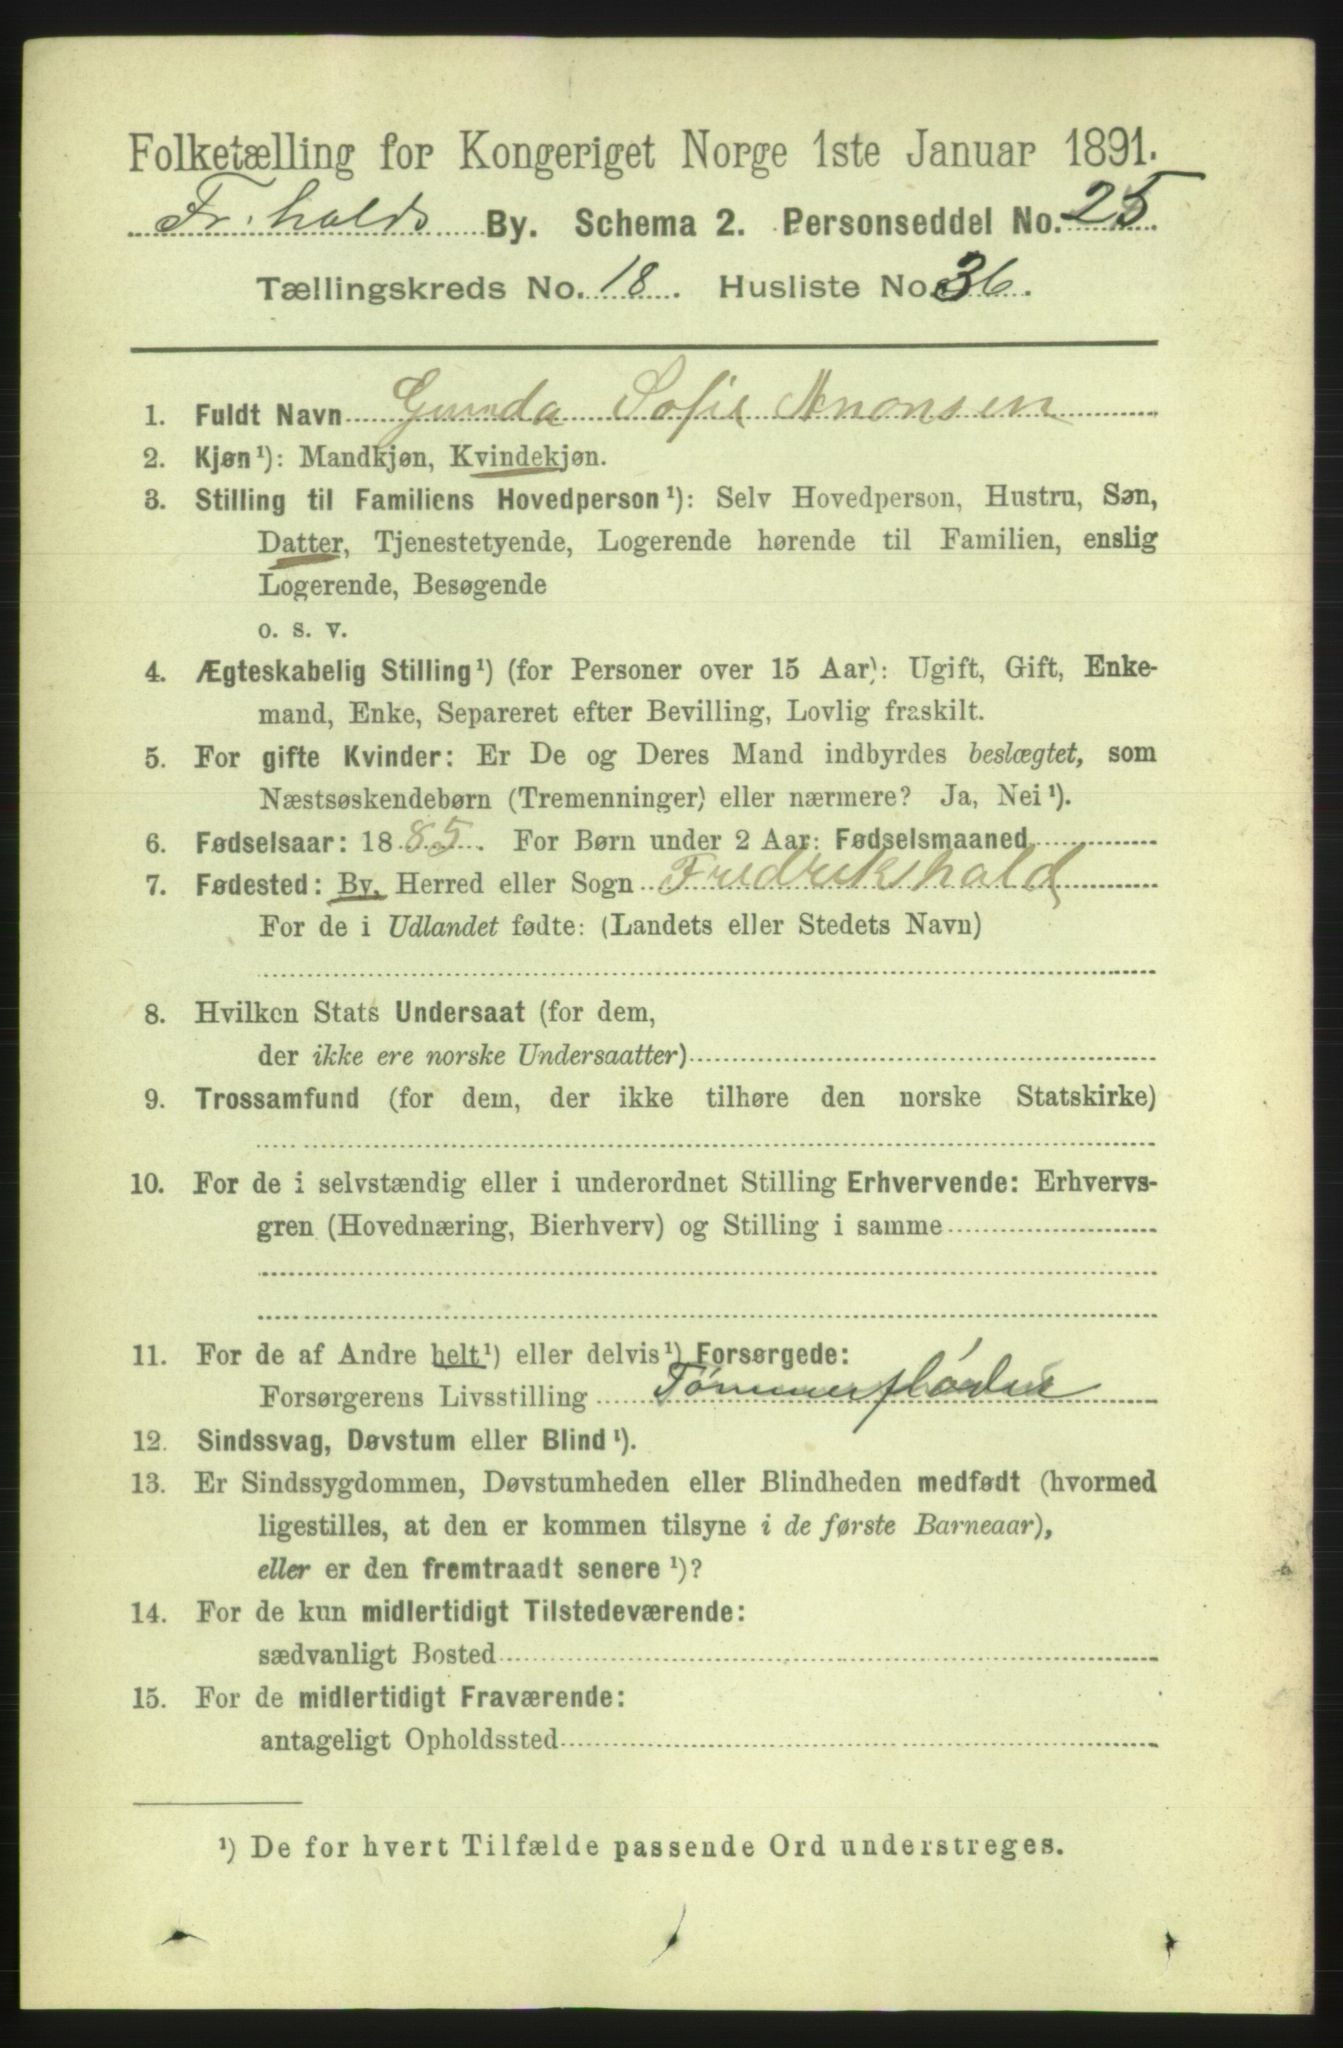 Folketælling for Kongeriget Norge 1ste Januar 1891.
Fr.halds By. Schema 2. Personseddel No. 25.
Tællingskreds No. 18. Husliste No. 36.
1. Fuldt Navn Gunda Sofie Aronsen
2. Kjøn¹): Mandkjøn, Kvindekjøn.
3. Stilling til Familiens Hovedperson¹): Selv Hovedperson, Hustru, Søn,
Datter, Tjenestetyende, Logerende hørende til Familien, enslig
Logerende, Besøgende
o. s. v.
4. Ægteskabelig Stilling¹) (for Personer over 15 Aar): Ugift, Gift, Enke-
mand, Enke, Separeret efter Bevilling, Lovlig fraskilt.
5. For gifte Kvinder: Er De og Deres Mand indbyrdes beslægtet, som
Næstsøskendebørn (Tremenninger) eller nærmere? Ja, Nei¹).
6. Fødselsaar: 1885. For Børn under 2 Aar: Fødselsmaaned
7. Fødested: By, Herred eller Sogn Fredrikshald
For de i Udlandet fødte: (Landets eller Stedets Navn)
8. Hvilken Stats Undersaat (for dem,
der ikke ere norske Undersaatter)
9. Trossamfund (for dem, der ikke tilhøre den norske Statskirke)
10. For de i selvstændig eller i underordnet Stilling Erhvervende: Erhvervs-
gren (Hovednæring, Bierhverv) og Stilling i samme
11. For de af Andre helt¹) eller delvis¹) Forsørgede:
Forsørgerens Livsstilling Tømmerfløder
12. Sindssvag, Døvstum eller Blind¹).
13. Er Sindssygdommen, Døvstumheden eller Blindheden medfødt (hvormed
ligestilles, at den er kommen tilsyne i de første Barneaar),
eller er den fremtraadt senere¹)?
14. For de kun midlertidigt Tilstedeværende:
sædvanligt Bosted
15. For de midlertidigt Fraværende:
antageligt Opholdssted
¹) De for hvert Tilfælde passende Ord understreges.